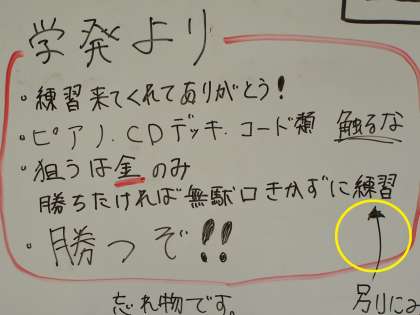 学発より
・練習来てくれてありがとう!
・ピアノ.CDデッキ.コード類 触るな
・狙うは金のみ
勝ちたければ無駄口きかずに練習
・勝つぞ!!
忘れ物です。
別に